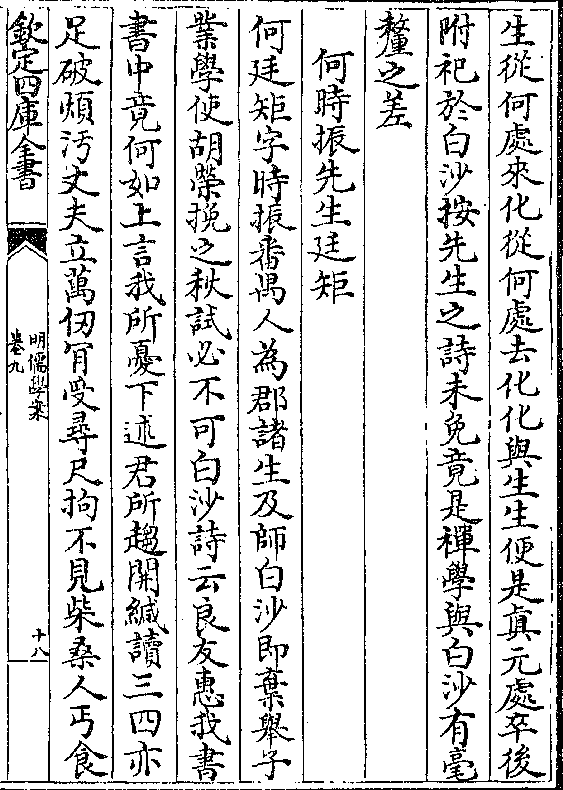 生從何處來化從何處去化化與生生便是真元處卒後
附祀於白沙按先生之詩未免竟是禪學與白沙有毫
釐之差
何時振先生廷矩
何廷矩字時振番禺人為郡諸生及師白沙即棄舉子
業學使胡榮挽之秋試必不可白沙詩云良友惠我書
書中竟何如上言我所憂下述君所趨開緘讀三四亦
足破煩污丈夫立萬仞肎受尋尺拘不見柴桑人丐食
欽定四庫全書
明儒學案
卷九
十八